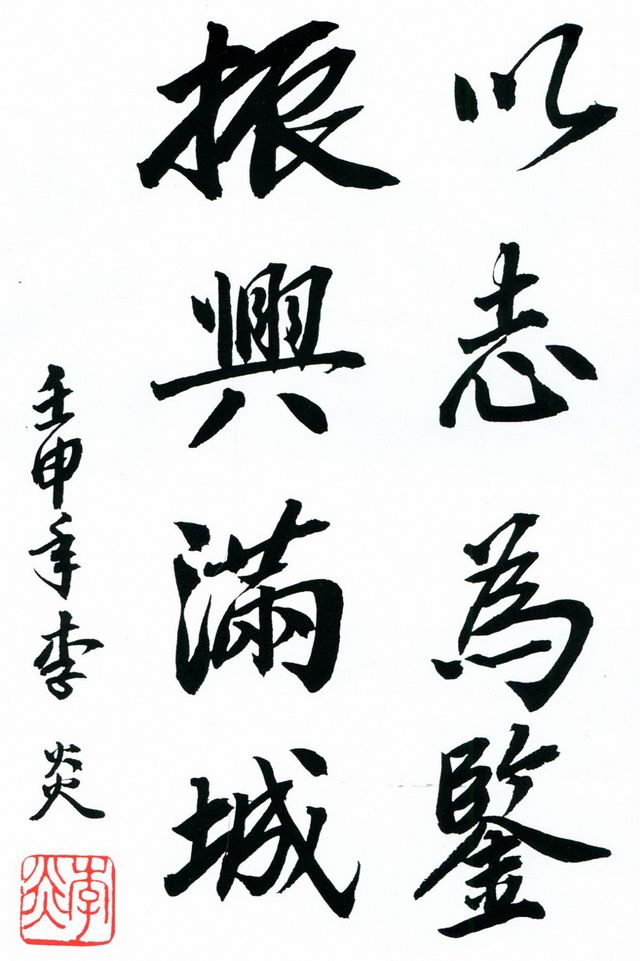 以志為鑒
振興滿城
壬申年李炎
李炎